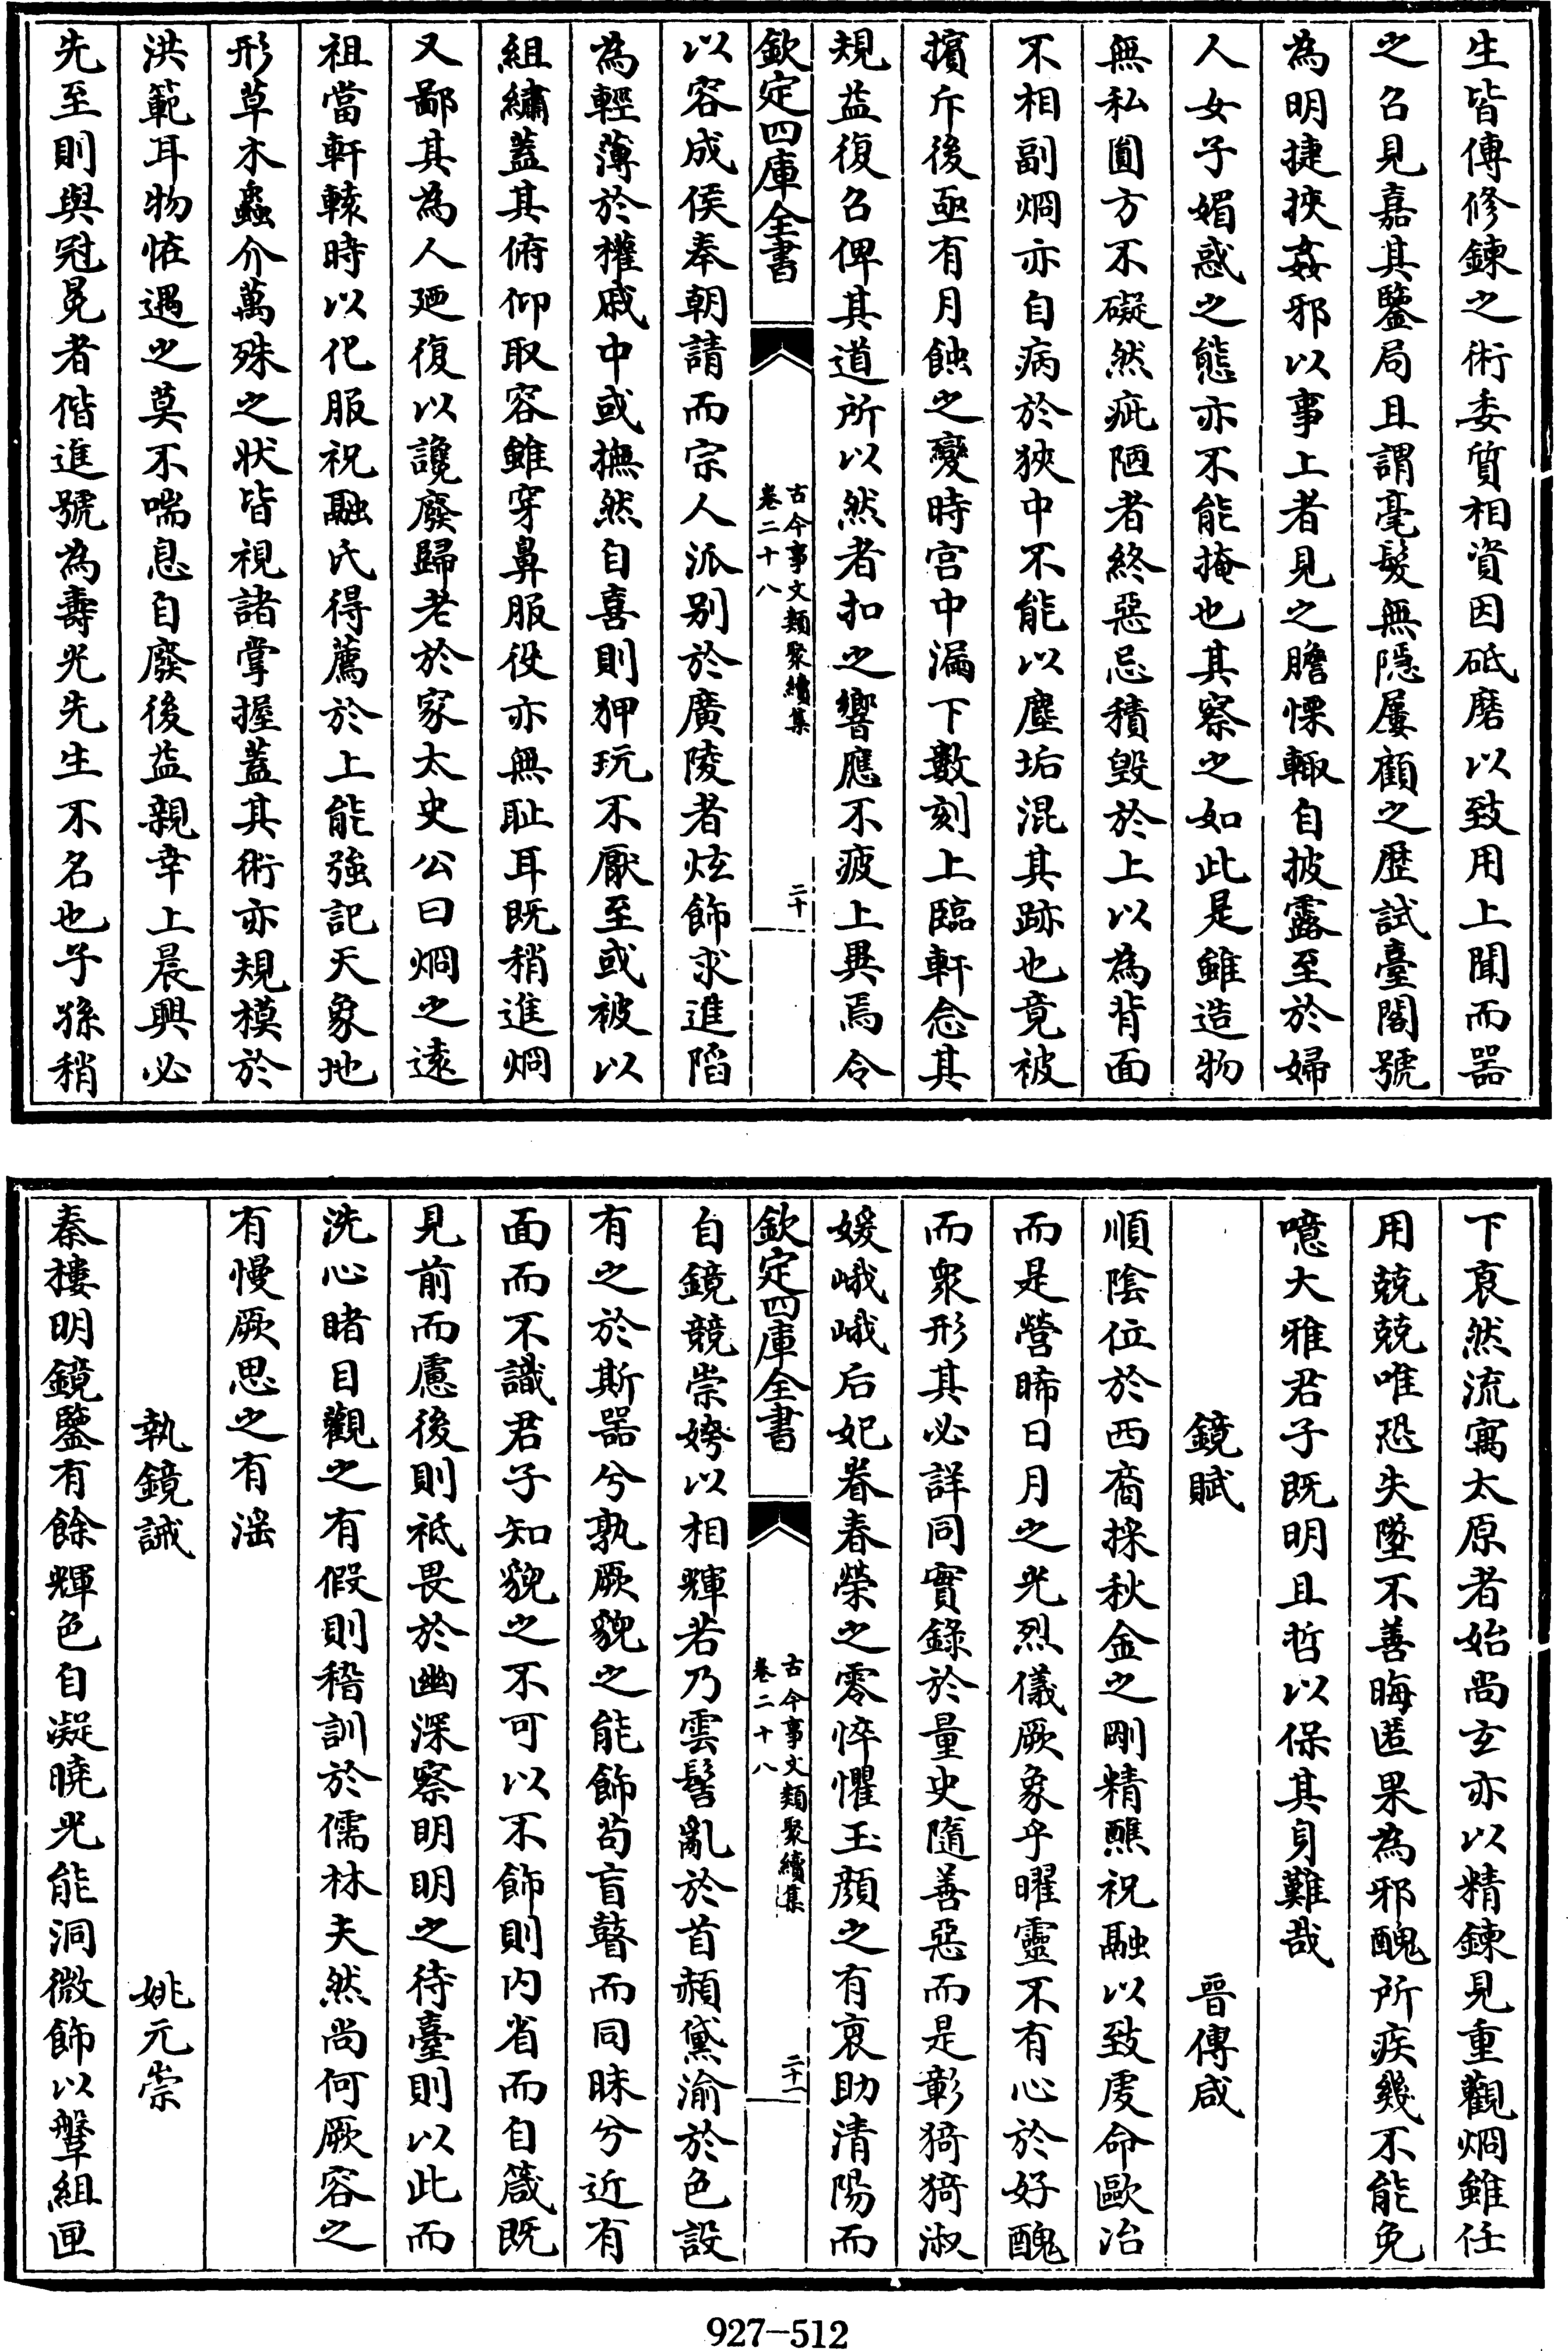 生皆傳修鍊之術委質相資因砥磨以致用上聞而器
之召見嘉其鑒局且謂毫髮無隱屢顧之歴試臺閣號
為明捷挾姦邪以事上者見之膽慄輙自披露至於婦
人女子媚惑之態亦不能掩也其察之如此是雖造物
無私圎方不礙然疵陋者終惡忌積毁於上以為背面
不相副烱亦自病於狹中不能以塵垢混其跡也竟被
擯斥後亟有月蝕之變時宫中漏下數刻上臨軒念其
規益復召俾其道所以然者扣之響應不疲上異焉令
欽定四庫全書
古今事文類聚續集
卷二十八
二十
以容成侯奉朝請而宗人派别於廣陵者炫飾求進陷
為輕薄於權戚中或撫然自喜則狎玩不厭至或被以
組繡蓋其俯仰取容雖穿鼻服役亦無耻耳既稍進烱
又鄙其為人廼復以讒廢歸老於家太史公曰烱之逺
祖當軒轅時以化服祝融氏得薦於上能強記天象地
形草木蟲介萬殊之狀皆視諸掌握蓋其術亦規模於
洪範耳物恠遇之莫不喘息自廢後益親幸上晨興必
先至則與冠冕者偕進號為壽光先生不名也子孫稍
下衰然流寓太原者始尚玄亦以精鍊見重觀烱雖任
用兢兢唯恐失墜不善晦匿果為邪醜所疾幾不能免
噫大雅君子既明且哲以保其身難哉
鏡賦 晉傅咸
順陰位於西裔採秋金之剛精醮祝融以致虔命歐冶
而是營晞日月之光烈儀厥象乎曜靈不有心於好醜
而衆形其必詳同實錄於量史隨善惡而是彰猗猗淑
媛峨峨后妃眷春榮之零悴懼玉顔之有衰助清陽而
欽定四庫全書
古今事文類聚續集
卷二十八
二十一
自鏡競崇姱以相輝若乃雲髻亂於首頳黛渝於色設
有之於斯器兮孰厥貌之能飾茍盲瞽而同昧兮近有
面而不識君子知貌之不可以不飾則内省而自箴既
見前而慮後則祗畏於幽深察明明之待臺則以此而
洗心睹日觀之有假則稽訓於儒林夫然尚何厥容之
有慢厥思之有滛
執鏡誡 姚元崇
秦樓明鏡鑒有餘輝色自凝曉光能洞微飾以鞶組匣
927-512